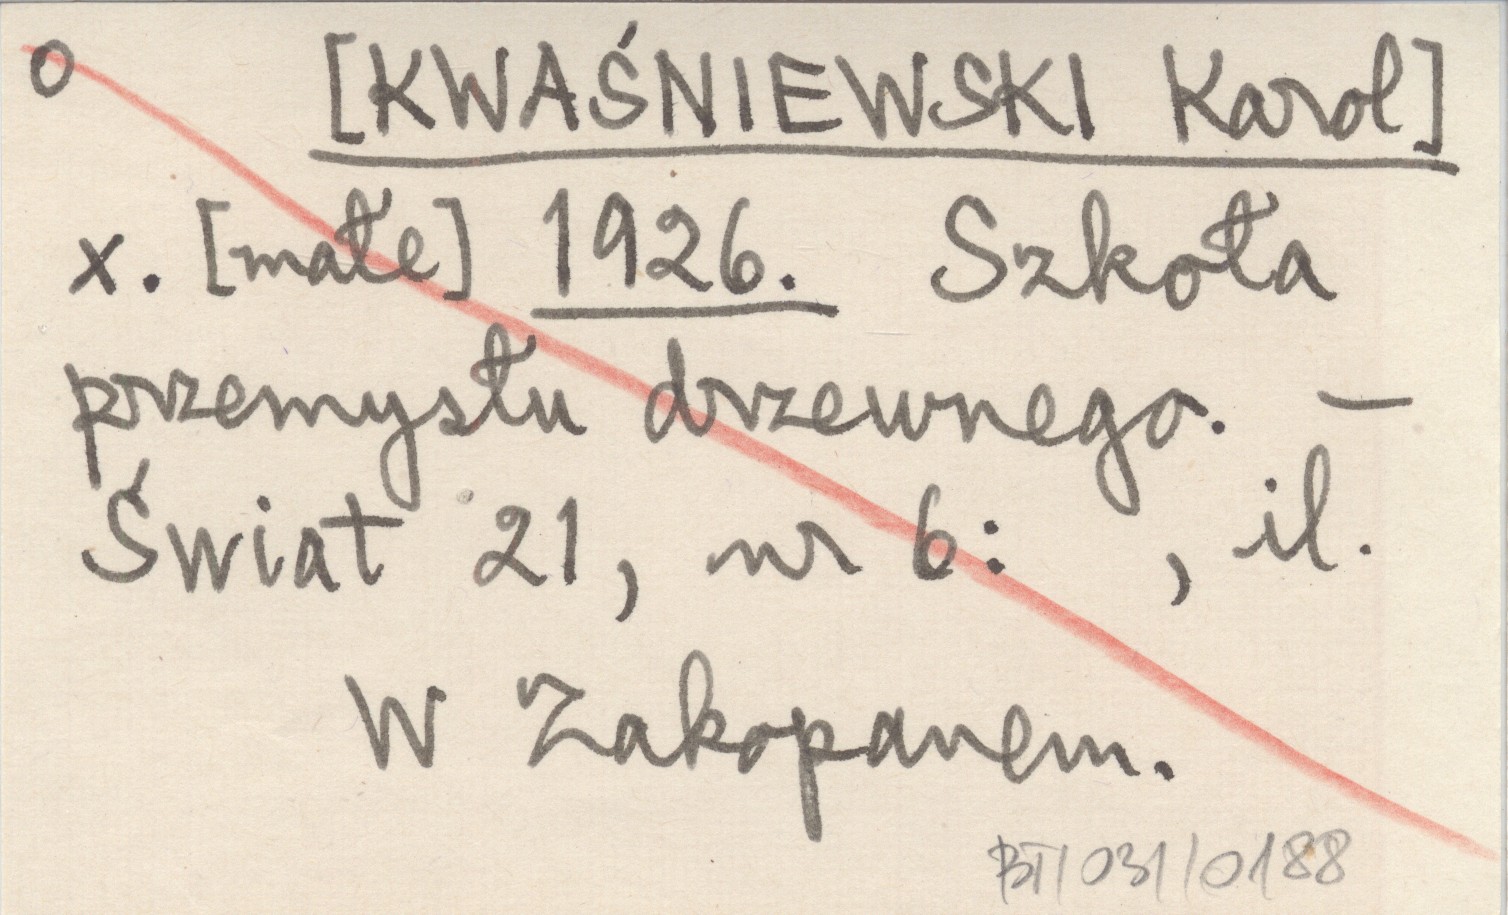 o [KWAŚNIEWSKI Karol]
x. [małe] 1926. Szkoła
przemysłu drzewnego. —
Świat 21, nr 6: , il.
W Zakopanem.
BT/031/0188